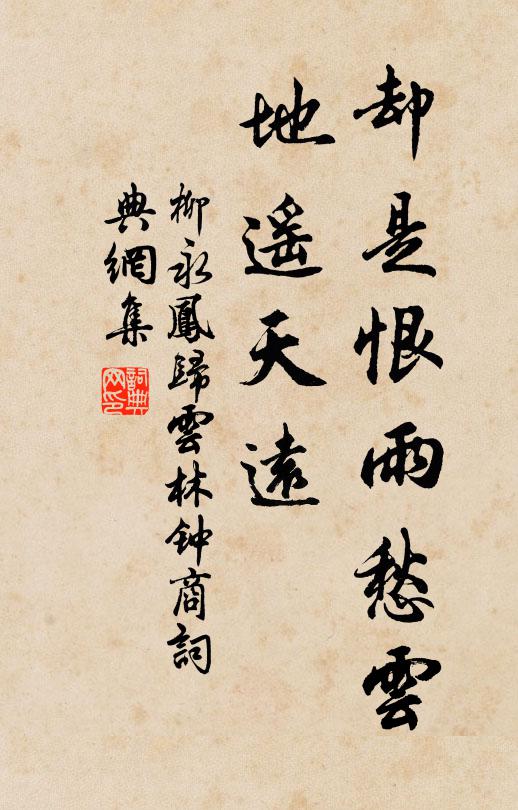 却是恨雨愁雲
地遥天遠
柳永鳳歸雲林钟商詞
典網集
詞典
网印